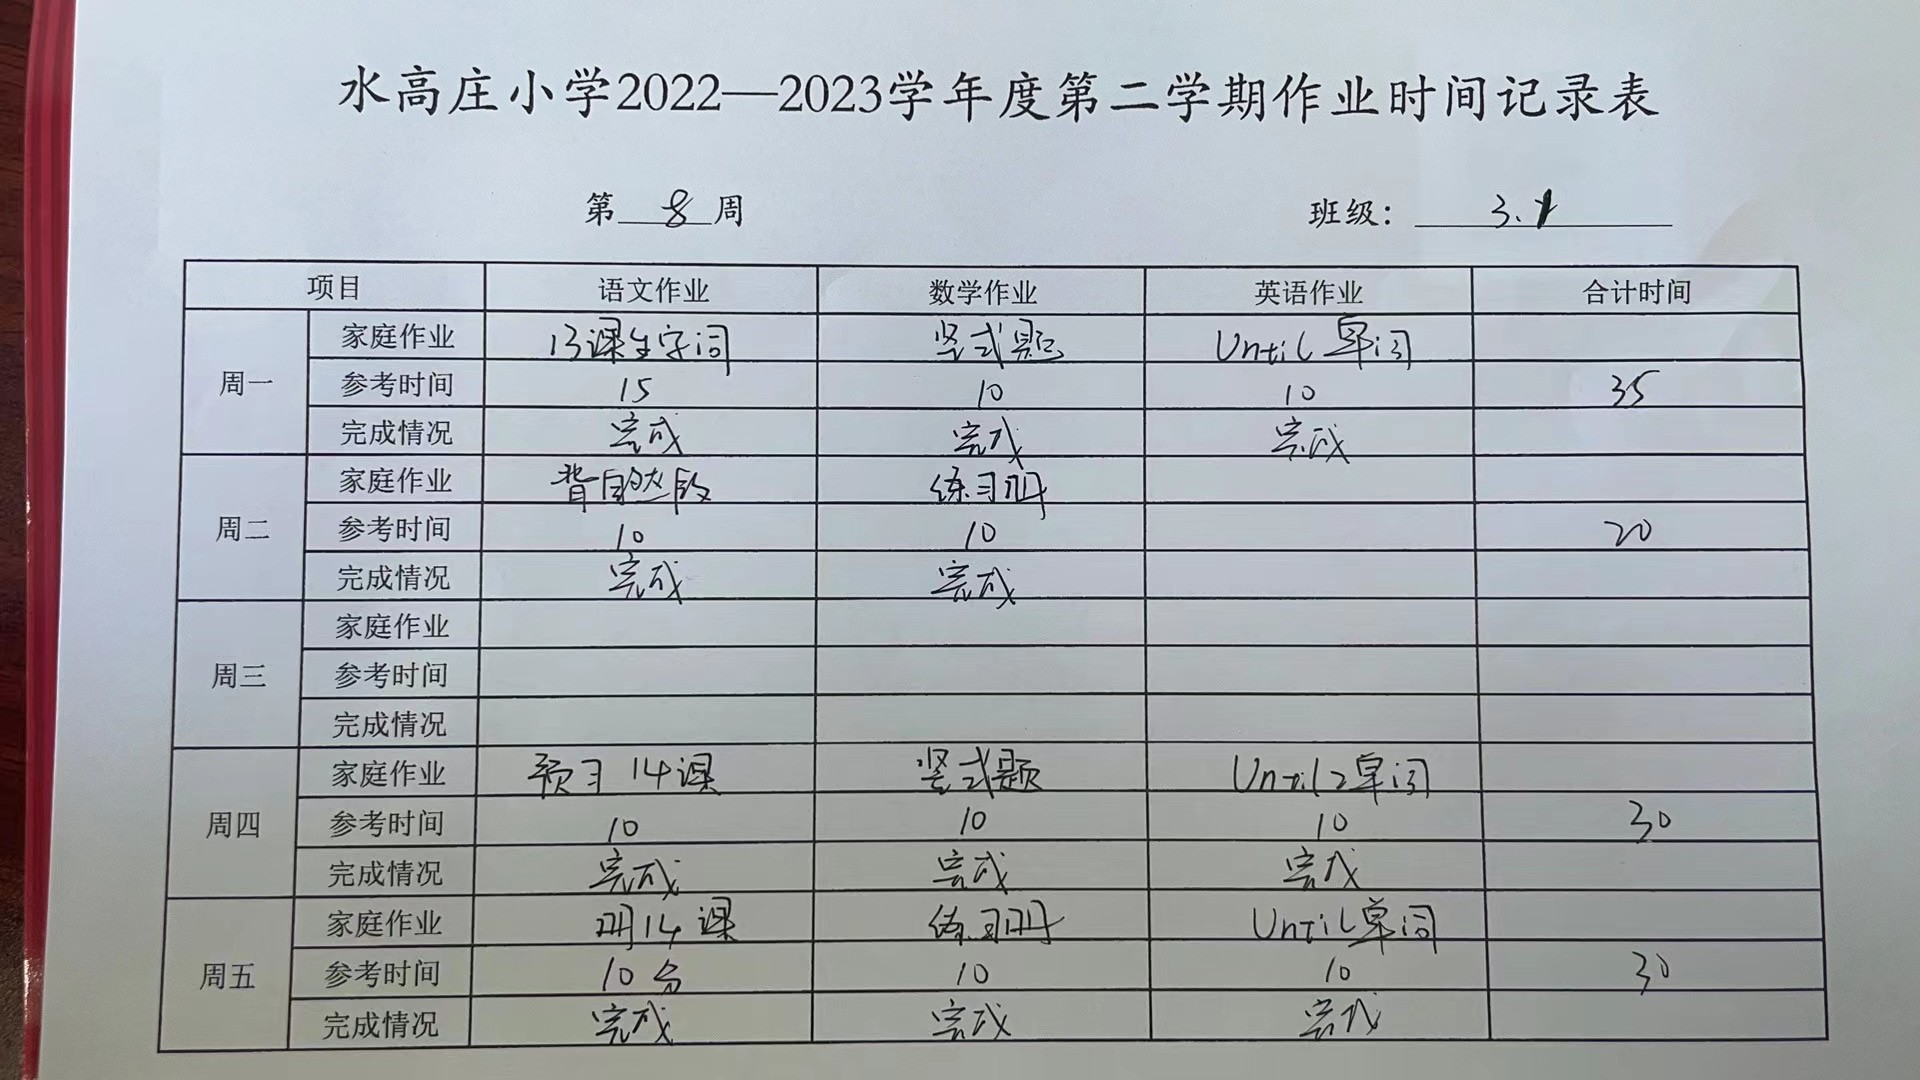 水高庄小学2022—2023学年度第二学期作业时间记录表
第 8 周 班级： 3.1
项目 语文作业 数学作业 英语作业 合计时间
周一
家庭作业 13课生字词 竖式题 Until 单词
参考时间 15 10 10 35
完成情况 完成 完成 完成
周二
家庭作业 背自然段 练习册
参考时间 10 10 20
完成情况 完成 完成
周三
家庭作业
参考时间
完成情况
周四
家庭作业 预习 14课 竖式题 Until 2单词
参考时间 10 10 10 30
完成情况 完成 完成 完成
周五
家庭作业 14课 练习册 Until 单词
参考时间 10分 10 10 30
完成情况 完成 完成 完成